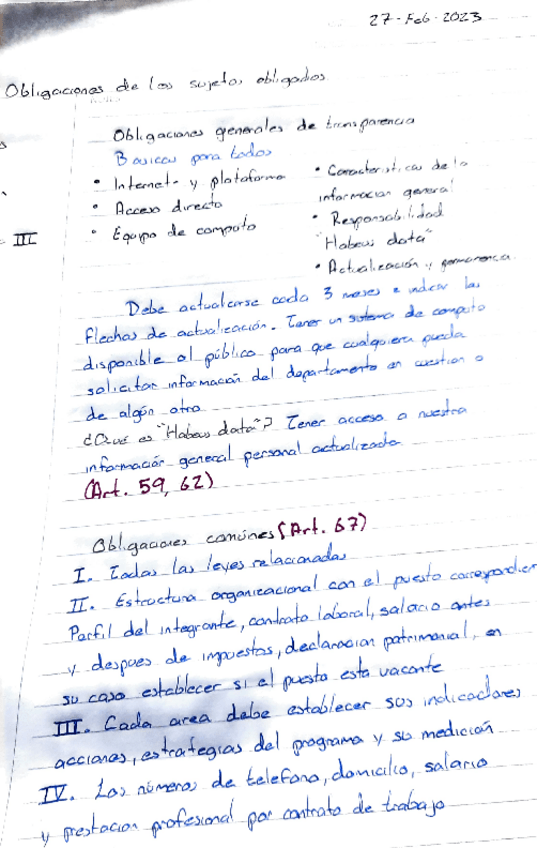 27-Feb-2023
Obligaciones de los sujetos obligados
Obligaciones generales de transparencia
Basicas para todos
• Internet y plataforma
• Acceso directo
• Equipo de computo
• Caracteristicas de la
informacion general
• Responsabilidad
"Habeus data"
• Actualización y permanencia
III
Debe actualizarse cada 3 meses e indicar las
flechas de actualización. Tener un sistema de computo
disponible al público para que cualquiera pueda
solicitar información del departamento en cuestion o
de algún otro
¿Qué es "Habeus data"? Tener acceso a nuestra
información general personal actualizada
(Art. 59, 62)
Obligaciones comúnes (Art. 67)
I. Todas las leyes relacionadas
II. Estructura organizacional con el puesto correspondien
Perfil del integrante, contrato laboral, salario antes
y despues de impuestos, declaracion patrimonial, en
su caso establecer si el puesto esta vacante
III. Cada area debe establecer sus indicadores
acciones, estrategias del programa y su medición
IV. Los números de telefono, domicilio, salario
y prestacion profesional por contrato de trabajo